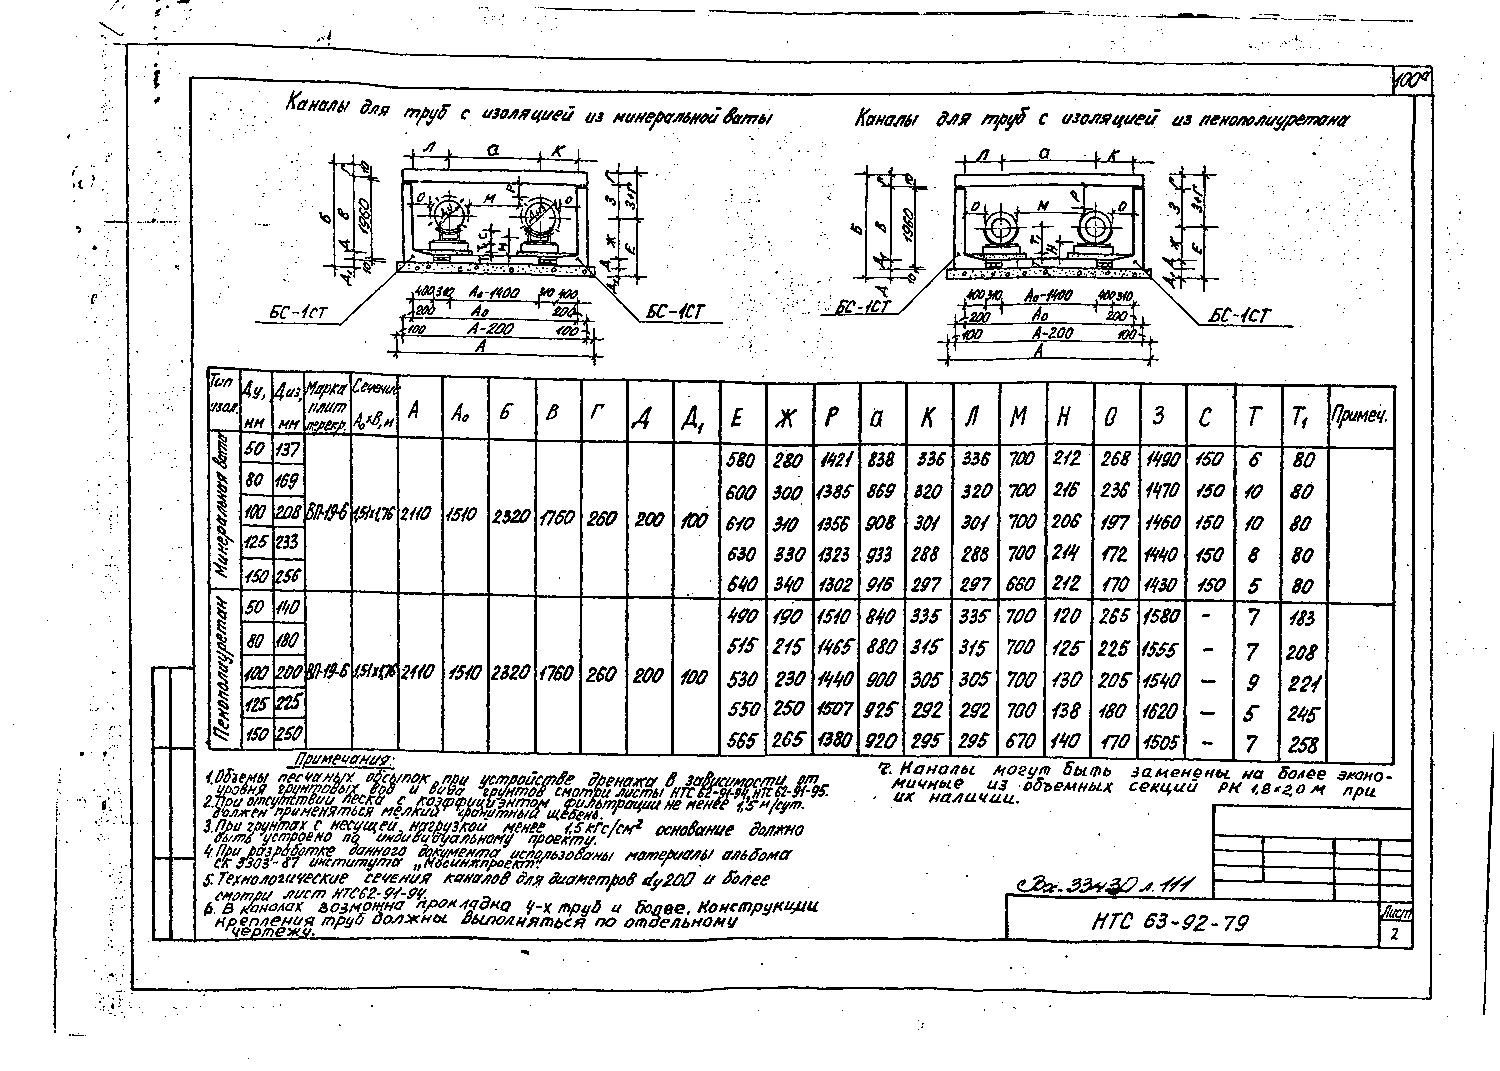 100а
Каналы для труб с изоляцией из минеральной ваты
Каналы для труб с изоляцией из пенополиуретана
Л а К
Л а К
БС-1СТ
БС-1СТ
БС-1СТ
БС-1СТ
400 310 А₀-1400 310 400
200 А₀ 200
100 А-200 100
А
400 310 А₀-1400 400 310
200 А₀ 200
100 А-200 100
А
Тип изол. Ду, мм Диз, мм Марка плит перекр. Сечение А₀×В, м А А₀ Б В Г Д Д₁ Е Ж Р а К Л М Н О З С Т Т₁ Примеч.
Минеральная вата ВП-19-6 1,51х1,76 2110 1510 2320 1760 260 200 100
50 137 580 280 1421 838 336 336 700 212 268 1490 150 6 80
80 169 600 300 1385 869 320 320 700 216 236 1470 150 10 80
100 208 610 310 1356 908 301 301 700 206 197 1460 150 10 80
125 233 630 330 1323 933 288 288 700 214 172 1440 150 8 80
150 256 640 340 1302 916 297 297 660 212 170 1430 150 5 80
Пенополиуретан ВП-19-6 1,51х1,76 2110 1510 2320 1760 260 200 100
50 140 490 190 1510 840 335 335 700 120 265 1580 - 7 183
80 180 515 215 1465 880 315 315 700 125 225 1555 - 7 208
100 200 530 230 1440 900 305 305 700 130 205 1540 - 9 221
125 225 550 250 1507 925 292 292 700 138 180 1620 - 5 245
150 250 565 265 1380 920 295 295 670 140 170 1505 - 7 258
Примечания:
1. Объемы песчаных обсыпок при устройстве дренажа в зависимости от
уровня грунтовых вод и вида грунтов смотри листы НТС 62-91-94, НТС 62-91-95.
2. При отсутствии песка с коэффициентом фильтрации не менее 1,5 м/сут.
должен применяться мелкий гранитный щебень.
3. При грунтах с несущей нагрузкой менее 1,5 кгс/см² основание должно
быть устроено по индивидуальному проекту.
4. При разработке данного документа использованы материалы альбома
СК 3303-87 института „Мосинжпроект"
5. Технологические сечения каналов для диаметров dу200 и более
смотри лист НТС62-91-94.
6. В каналах возможна прокладка 4-х труб и более. Конструкции
крепления труб должны выполняться по отдельному
чертежу.
7. Каналы могут быть заменены на более эконо-
мичные из объемных секций РК 1,8×2,0 м при
их наличии.
Вх. 33430 л. 111
НТС 63-92-79
Лист
2